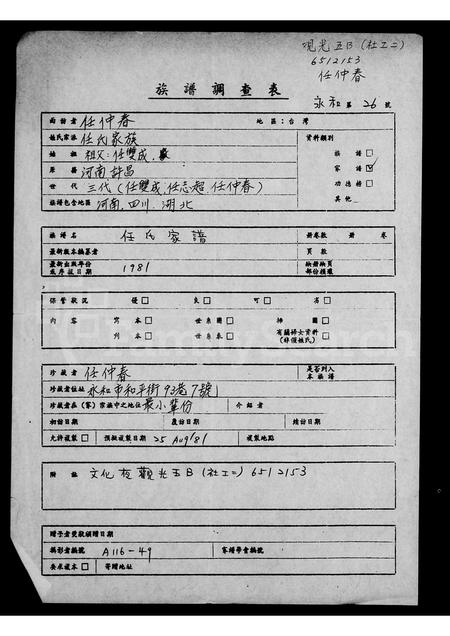 观光五B(社工二)
6512153
任仲春
族譜調查表
永和 第 26 號
面訪者 任仲春 地區:台灣
姓氏宗派 任氏家族 資料類別
始祖 祖父:任雙成 族譜 □
原籍 河南.許昌 家譜 ☑
世代 三代(任雙成.任志超.任仲春) 功德榜 □
族譜包含地區 河南.四川.湖北 其他
族譜名 任氏家譜 冊卷數 冊 卷
最新版本編纂者 頁數
最新出版年份 或序拔日期 1981 缺冊缺頁 部份損壞
保管狀況 優 □ 良 □ 可 □ 劣 □
內容 寫本 □ 世系圖 □ 插圖 □
刊本 □ 世系表 □ 有關婦女資料 □ (非僅姓氏)
珍藏者 任仲春 是否列入 本族譜
珍藏者住址 永和市和平街93巷7號
珍藏者在(客)宗族中之地位 最小輩份 介紹者
初訪日期 覆訪日期 續訪日期
允許複製 □ 預擬複製日期 25 Aug/81 複製地點
附註 文化夜觀光五B(社工二) 6512153
贈予者受款領贈日期
攝影者編號 A116-49 客譜學會編號
要求複本 □ 寄贈地址